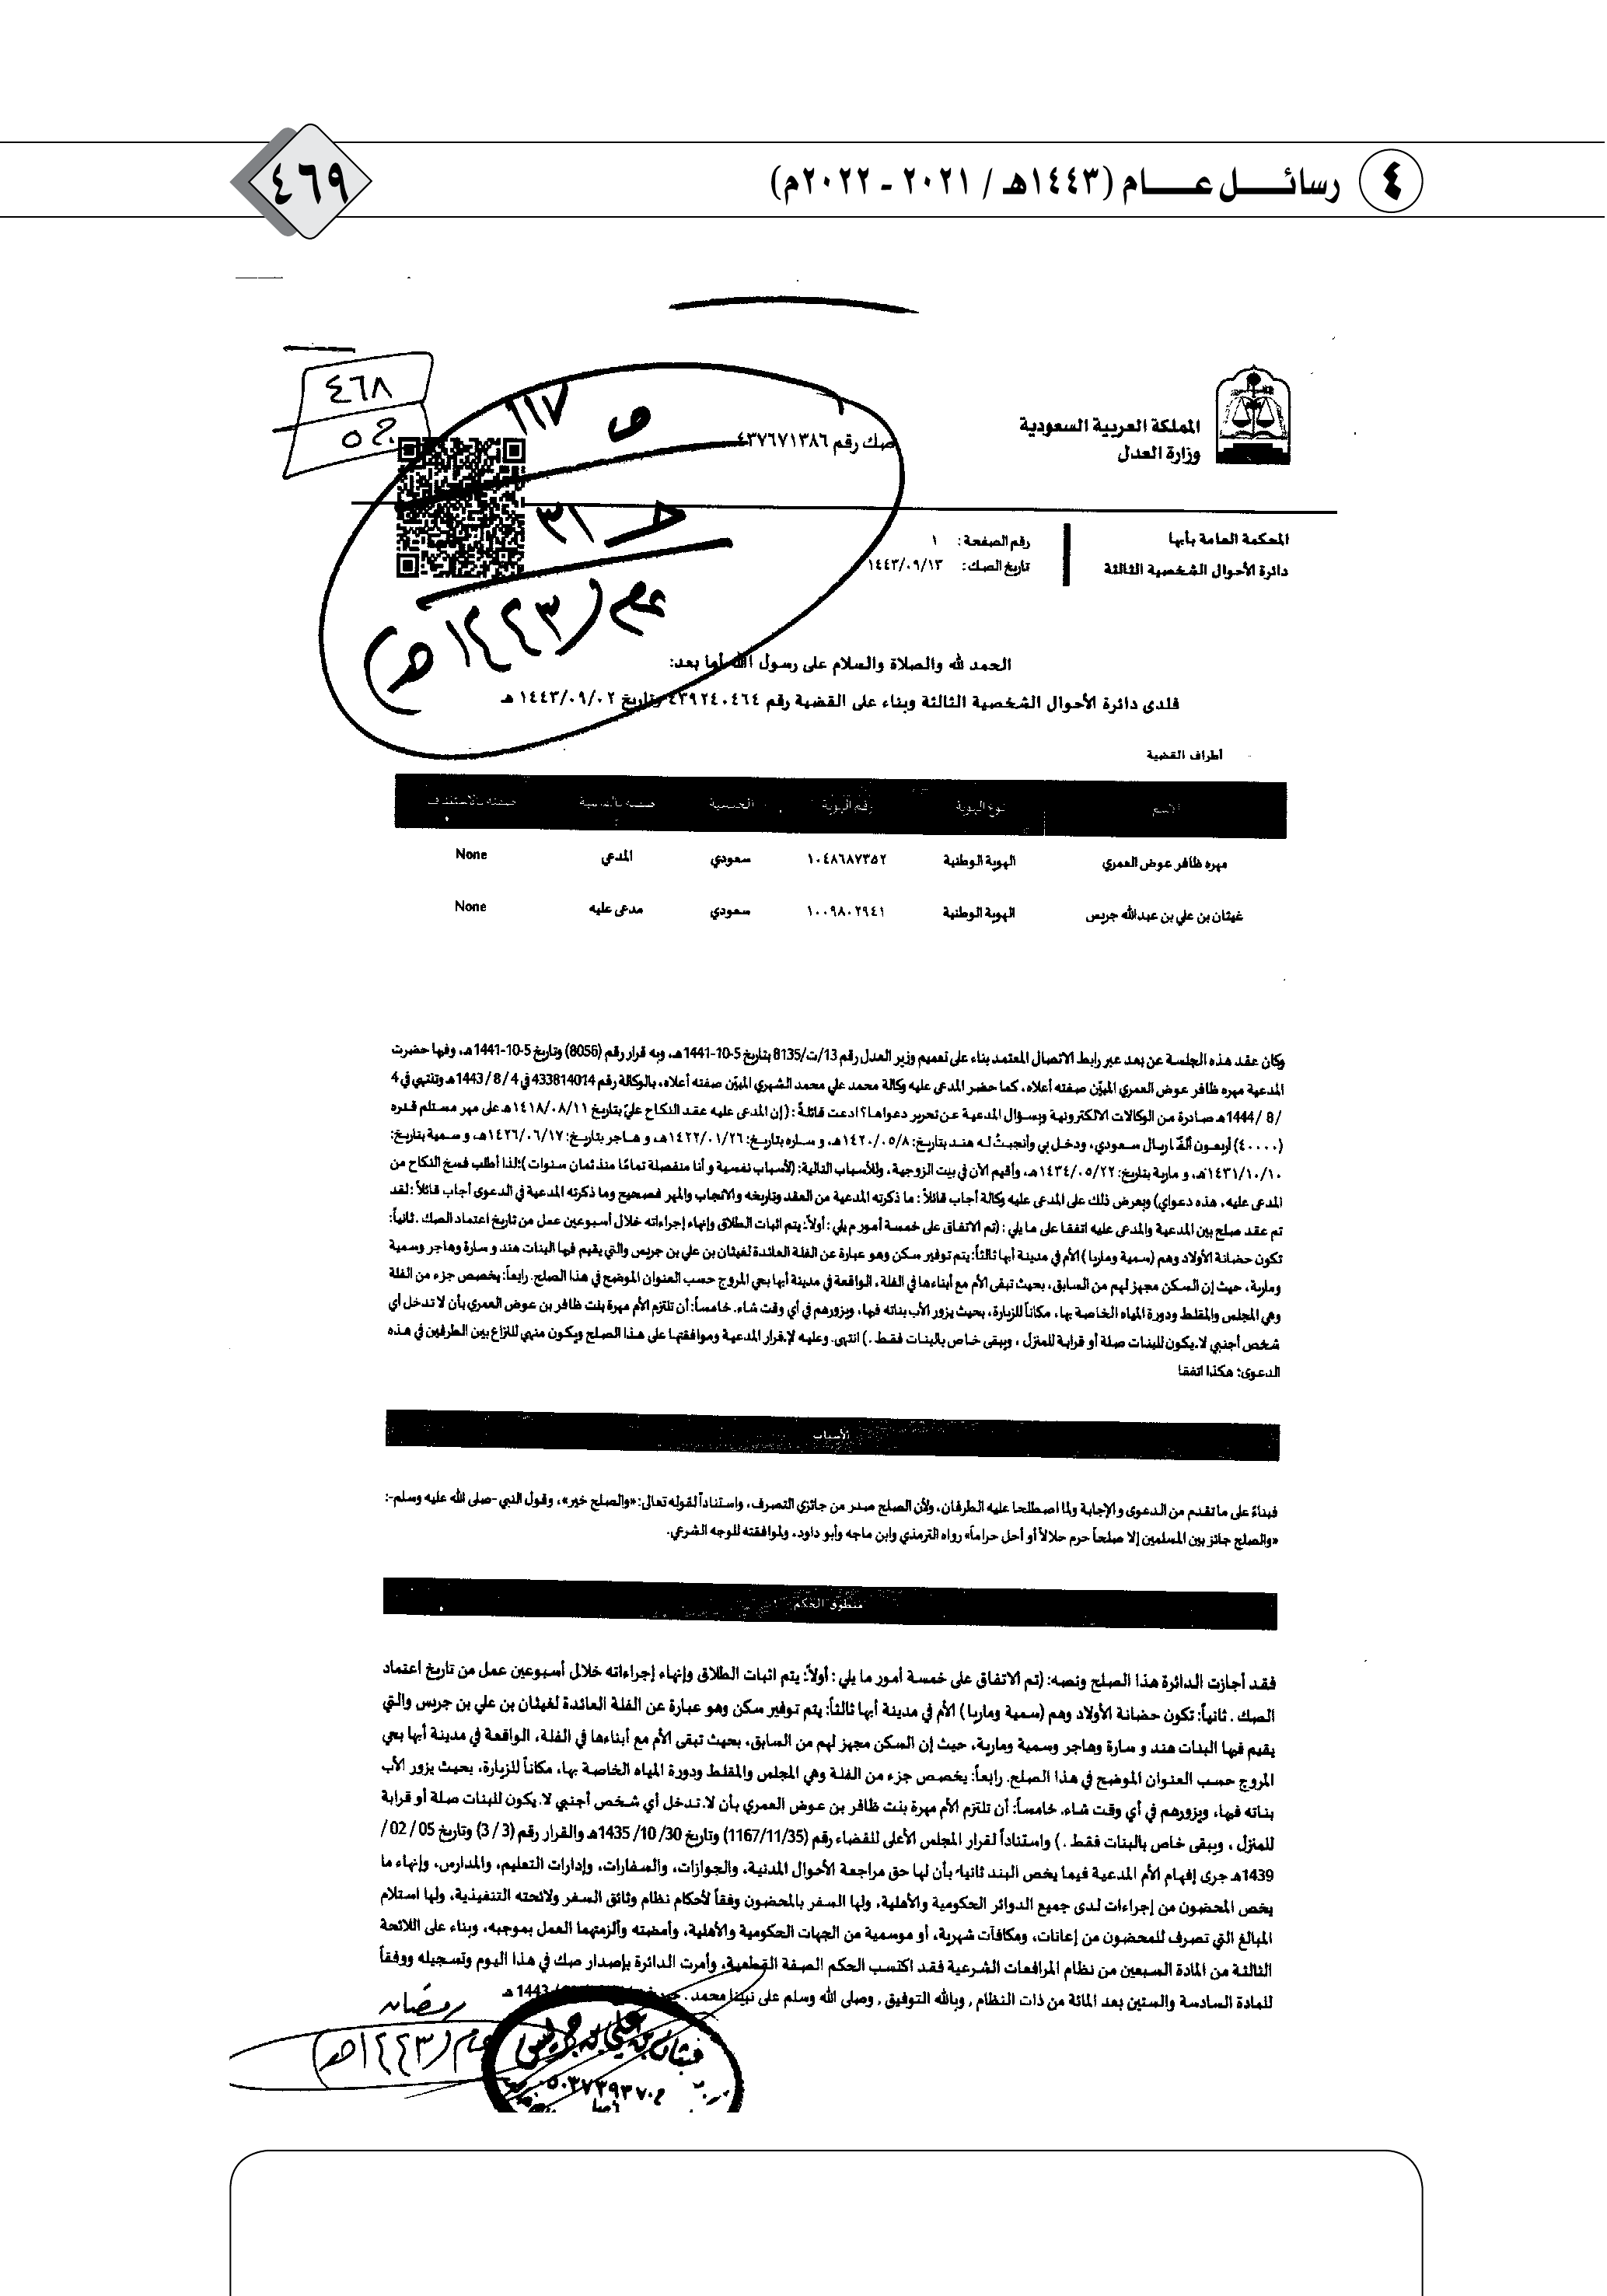 ٤ رسائل عام (١٤٤٣هـ / ٢٠٢١ - ٢٠٢٢م)
٤٦٩
٤٦٨
ص ١١٧
ح ٣١
عام (١٤٤٣هـ)
المملكة العربية السعودية
وزارة العدل
صك رقم ٤٣٧٦٧١٣٨٦
المحكمة العامة بأبها
دائرة الأحوال الشخصية الثالثة
رقم الصفحة: ١
تاريخ الصك: ١٤٤٣/٠٩/١٣
الحمد لله والصلاة والسلام على رسول الله أما بعد:
فلدى دائرة الأحوال الشخصية الثالثة وبناء على القضية رقم ٤٣٩٢٤٠٤٦٤ وتاريخ ١٤٤٣/٠٩/٠٢ هـ
أطراف القضية
الاسم نوع الهوية رقم الهوية الجنسية
مهره ظافر عوض العمري الهوية الوطنية ١٠٤٨٦٨٧٣٥٢ سعودي المدعي None
غيثان بن علي بن عبدالله جريس الهوية الوطنية ١٠٠٩٨٠٢٩٤١ سعودي مدعى عليه None
وكان عقد هذه الجلسة عن بعد عبر رابط الاتصال المعتمد بناء على تعميم وزير العدل رقم 13/ت/8135 بتاريخ 5-10-1441هـ، وبه قرار رقم (8056) وتاريخ 5-10-1441هـ، وفيها حضرت
المدعية مهره ظافر عوض العمري المبيّن صفته أعلاه، كما حضر المدعى عليه وكالة محمد علي محمد الشهري المبيّن صفته أعلاه، بالوكالة رقم 433814014 في 4 / 8 / 1443هـ وتنتهي في 4
/ 8 / 1444هـ صادرة من الوكالات الالكترونية وبسؤال المدعية عن تحرير دعواها؟ ادعت قائلةً : (إن المدعى عليه عقد النكاح عليّ بتاريخ ١٤١٨/٠٨/١١هـ على مهر مستلم قدره
(٤٠٠٠٠) أربعون ألفًا ريال سعودي، ودخل بي وأنجبتُ له هند بتاريخ: ١٤٢٠/٠٥/٨هـ، و ساره بتاريخ: ١٤٢٢/٠١/٢٦هـ، و هاجر بتاريخ: ١٤٢٦/٠٦/١٧هـ، و سمية بتاريخ:
١٤٣١/١٠/١٠هـ، و مارية بتاريخ: ١٤٣٤/٠٥/٢٢هـ، وأقيم الآن في بيت الزوجية، وللأسباب التالية: (لأسباب نفسية و أنا منفصلة تمامًا منذ ثمان سنوات )؛لذا أطلب فسخ النكاح من
المدعى عليه، هذه دعواي) وبعرض ذلك على المدعى عليه وكالة أجاب قائلاً : ما ذكرته المدعية من العقد وتاريخه والانجاب والمهر فصحيح وما ذكرته المدعية في الدعوى أجاب قائلاً :لقد
تم عقد صلح بين المدعية والمدعى عليه اتفقا على ما يلي : (تم الاتفاق على خمسة أمور م يلي : أولاً: يتم اثبات الطلاق وإنهاء إجراءاته خلال أسبوعين عمل من تاريخ اعتماد الصك . ثانياً:
تكون حضانة الأولاد وهم (سمية وماريا ) الأم في مدينة أبها ثالثاً: يتم توفير سكن وهو عبارة عن الفلة العائدة لغيثان بن علي بن جريس والتي يقيم فيها البنات هند و سارة وهاجر وسمية
ومارية، حيث إن السكن مجهز لهم من السابق، بحيث تبقى الأم مع أبناءها في الفلة، الواقعة في مدينة أبها بحي المروج حسب العنوان الموضح في هذا الصلح. رابعاً: يخصص جزء من الفلة
وهي المجلس والمقلط ودورة المياه الخاصة بها، مكاناً للزيارة، بحيث يزور الأب بناته فيها، ويزورهم في أي وقت شاء. خامساً: أن تلتزم الأم مهرة بنت ظافر بن عوض العمري بأن لا تدخل أي
شخص أجنبي لا يكون للبنات صلة أو قرابة للمنزل ، ويبقى خاص بالبنات فقط .) انتهى. وعليه لإقرار المدعية وموافقتها على هذا الصلح ويكون منهي للنزاع بين الطرفين في هذه
الدعوى؛ هكذا اتفقا
الأسباب
فبناءً على ما تقدم من الدعوى والإجابة ولما اصطلحا عليه الطرفان، ولأن الصلح صدر من جائزي التصرف، واستناداً لقوله تعالى: «والصلح خير»، وقول النبي –صلى الله عليه وسلم-:
«والصلح جائز بين المسلمين إلا صلحاً حرم حلالاً أو أحل حراماً» رواه الترمذي وابن ماجه وأبو داود، ولموافقته للوجه الشرعي.
منطوق الحكم
فقد أجازت الدائرة هذا الصلح ونصه: (تم الاتفاق على خمسة أمور ما يلي : أولاً: يتم اثبات الطلاق وإنهاء إجراءاته خلال أسبوعين عمل من تاريخ اعتماد
الصك . ثانياً: تكون حضانة الأولاد وهم (سمية وماريا ) الأم في مدينة أبها ثالثاً: يتم توفير سكن وهو عبارة عن الفلة العائدة لغيثان بن علي بن جريس والتي
يقيم فيها البنات هند و سارة وهاجر وسمية ومارية، حيث إن السكن مجهز لهم من السابق، بحيث تبقى الأم مع أبناءها في الفلة، الواقعة في مدينة أبها بحي
المروج حسب العنوان الموضح في هذا الصلح. رابعاً: يخصص جزء من الفلة وهي المجلس والمقلط ودورة المياه الخاصة بها، مكاناً للزيارة، بحيث يزور الأب
بناته فيها، ويزورهم في أي وقت شاء. خامساً: أن تلتزم الأم مهرة بنت ظافر بن عوض العمري بأن لا تدخل أي شخص أجنبي لا يكون للبنات صلة أو قرابة
للمنزل ، ويبقى خاص بالبنات فقط .) واستناداً لقرار المجلس الأعلى للقضاء رقم (1167/11/35) وتاريخ 30/ 10/ 1435هـ والقرار رقم (3 / 3) وتاريخ 05 / 02 /
1439هـ جرى إفهام الأم المدعية فيما يخص البند ثانيا بأن لها حق مراجعة الأحوال المدنية، والجوازات، والسفارات، وإدارات التعليم، والمدارس، وإنهاء ما
يخص المحضون من إجراءات لدى جميع الدوائر الحكومية والأهلية، ولها السفر بالمحضون وفقاً لأحكام نظام وثائق السفر ولائحته التنفيذية، ولها استلام
المبالغ التي تصرف للمحضون من إعانات، ومكافآت شهرية، أو موسمية من الجهات الحكومية والأهلية، وأمضته وألزمتهما العمل بموجبه، وبناء على اللائحة
الثالثة من المادة السبعين من نظام المرافعات الشرعية فقد اكتسب الحكم الصفة القطعية، وأمرت الدائرة بإصدار صك في هذا اليوم وتسجيله ووفقاً
للمادة السادسة والستين بعد المائة من ذات النظام , وبالله التوفيق , وصلى الله وسلم على نبينا محمد . 1443 هـ
رمضان
عام (١٤٤٣هـ)
غيثان بن علي بن جريس